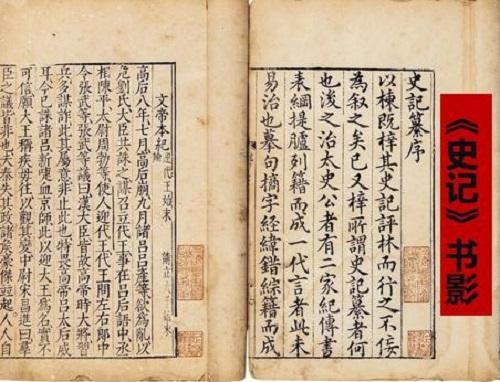 《史记》书影
史記纂序
以棟既梓其史記評林而行之不佞
為叙之矣已又梓所謂史記纂者何
也後之治太史公者有二家紀傳書
表綱提臚列籍而成一代言者此未
易治也摹句摘字經緯錯綜籍而成
文帝本紀
高后八年七月高后崩九月諸呂呂產等欲為亂以
危劉氏大臣共誅之謀召立代王事在呂后語中丞
相陳平太尉周勃等使人迎代王代王問左右郎中
令張武等張武等議曰漢大臣皆故高帝時大將習
兵多謀詐此其屬意非止此也特畏高帝呂太后威
耳今已誅諸呂新喋血京師此以迎大王為名實不
可信願大王稱疾毋往以觀其變中尉宋昌進曰羣
臣之議皆非也夫秦失其政諸侯豪傑並起人人自